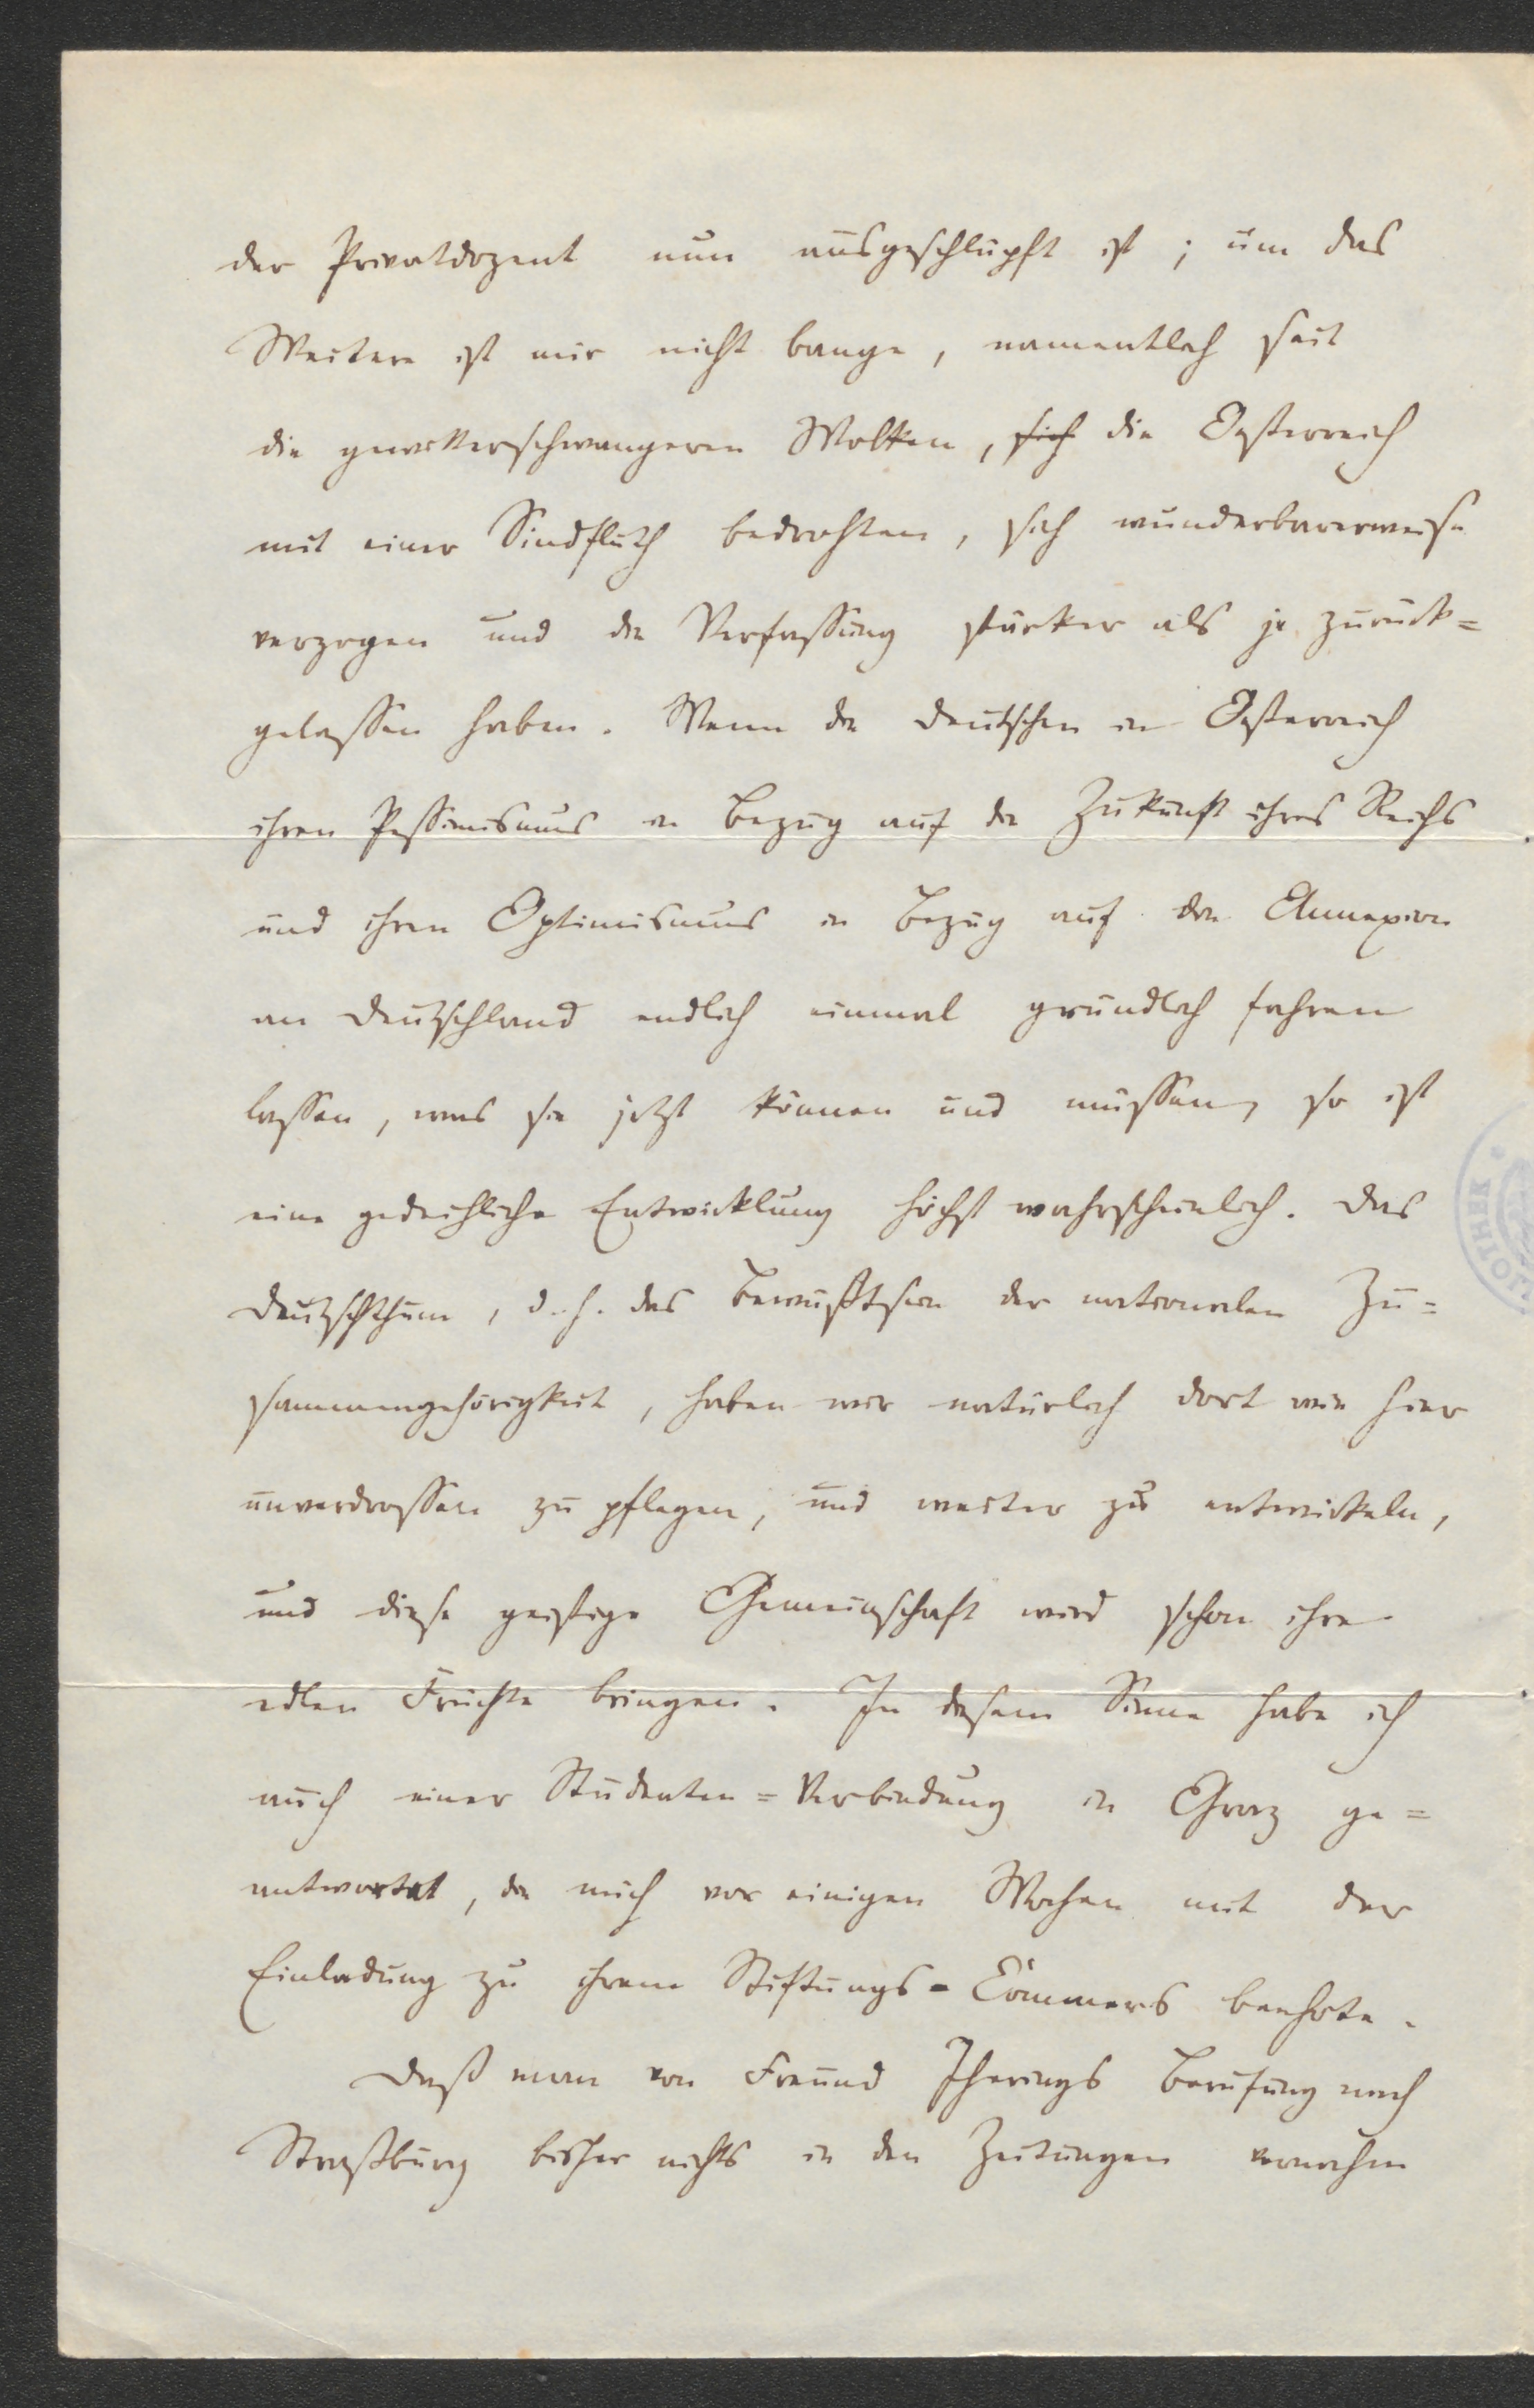 der Privatdozent nun ausgeschlüpft ist; um das
Weitere ist mir nicht bange, namentlich seit
die gewitterschwangeren Wolken, sich die Oesterreich
mit einer Sindfluth bedrohten, sich wunderbarerweise
verzogen und die Verfassung stärker als je zurück=
gelassen haben. Wenn die Deutschen in Oesterreich
ihren Pessimismus in Bezug auf die Zukunft ihres Reichs
und ihren Optimismus in Bezug auf die Annexion
an Deutschland endlich einmal gründlich fahren
lassen, was sie jetzt können und müssen, so ist
eine gedeihliche Entwicklung höchst wahrscheinlich. Das
Deutschthum, d. h. das Bewußtsein der nationalen Zu=
sammengehörigkeit, haben wir natürlich dort wie hier
unverdrossen zu pflegen, und weiter zu entwickeln,
und diese geistige Gemeinschaft wird schon ihre
edlen Früchte bringen. In diesem Sinne habe ich
auch einer Studenten=Verbindung in Graz ge=
antwortet, die mich vor einigen Wochen mit der
Einladung zu ihrem Stiftungs=Commers beehrte.
Daß man von Freund Iherings Berufung nach
Straßburg bisher nichts in den Zeitungen vernahm